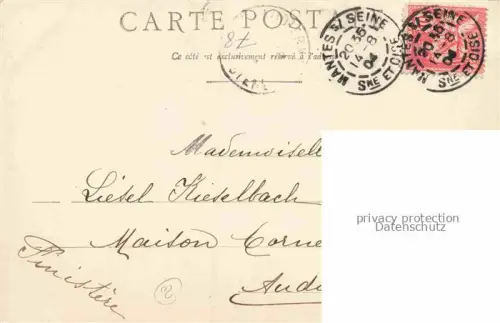 CARTE POST
Ce côté est exclusivement réservé à l'ad
78
MANTES S/ SEINE
20 35
14 - 8
04
SNE ET OISE
MANTES S/ SEINE
20 35
14 - 8
04
SNE ET OISE
Mademoisell
Liesel Kieselbach
Maison Corne
Finistère
Audi
2
privacy protection
Datenschutz